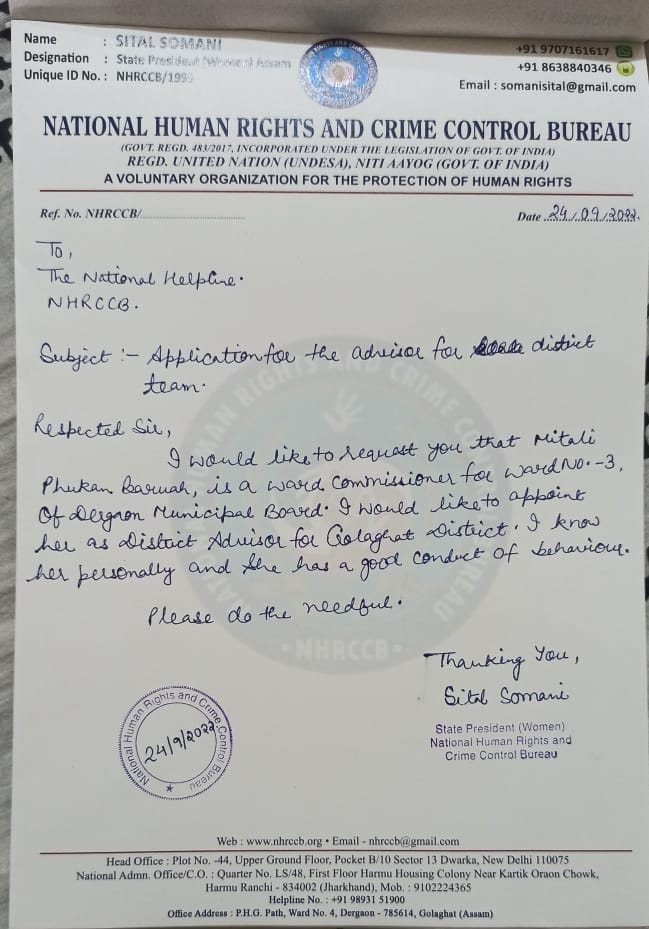 Name : SITAL SOMANI
Designation : State President (Women) Assam
Unique ID No. : NHRCCB/199
+91 9707161617
+91 8638840346
Email : somanisital@gmail.com
NATIONAL HUMAN RIGHTS AND CRIME CONTROL BUREAU
(GOVT. REGD. 483/2017, INCORPORATED UNDER THE LEGISLATION OF GOVT. OF INDIA)
REGD. UNITED NATION (UNDESA), NITI AAYOG (GOVT. OF INDIA)
A VOLUNTARY ORGANIZATION FOR THE PROTECTION OF HUMAN RIGHTS
Ref. No. NHRCCB/..............................
Date 24/09/2022.
To,
The National Helpline.
NHRCCB.
Subject :- Application for the advisor for district
team.
Respected Sir,
I would like to request you that Mitali
Phukan Baruah, is a ward commissioner for ward No.-3,
Of Dergaon Municipal Board. I would like to appoint
her as District Advisor for Golaghat District. I know
her personally and she has a good conduct of behaviour.
Please do the needful.
Thanking You,
Sital Somani
State President (Women)
National Human Rights and
Crime Control Bureau
National Human Rights and Crime Control Bureau
24/9/2022
NHRCCB
Web : www.nhrccb.org • Email - nhrccb@gmail.com
Head Office : Plot No. -44, Upper Ground Floor, Pocket B/10 Sector 13 Dwarka, New Delhi 110075
National Admn. Office/C.O. : Quarter No. LS/48, First Floor Harmu Housing Colony Near Kartik Oraon Chowk,
Harmu Ranchi - 834002 (Jharkhand), Mob. : 9102224365
Helpline No. : +91 98931 51900
Office Address : P.H.G. Path, Ward No. 4, Dergaon - 785614, Golaghat (Assam)